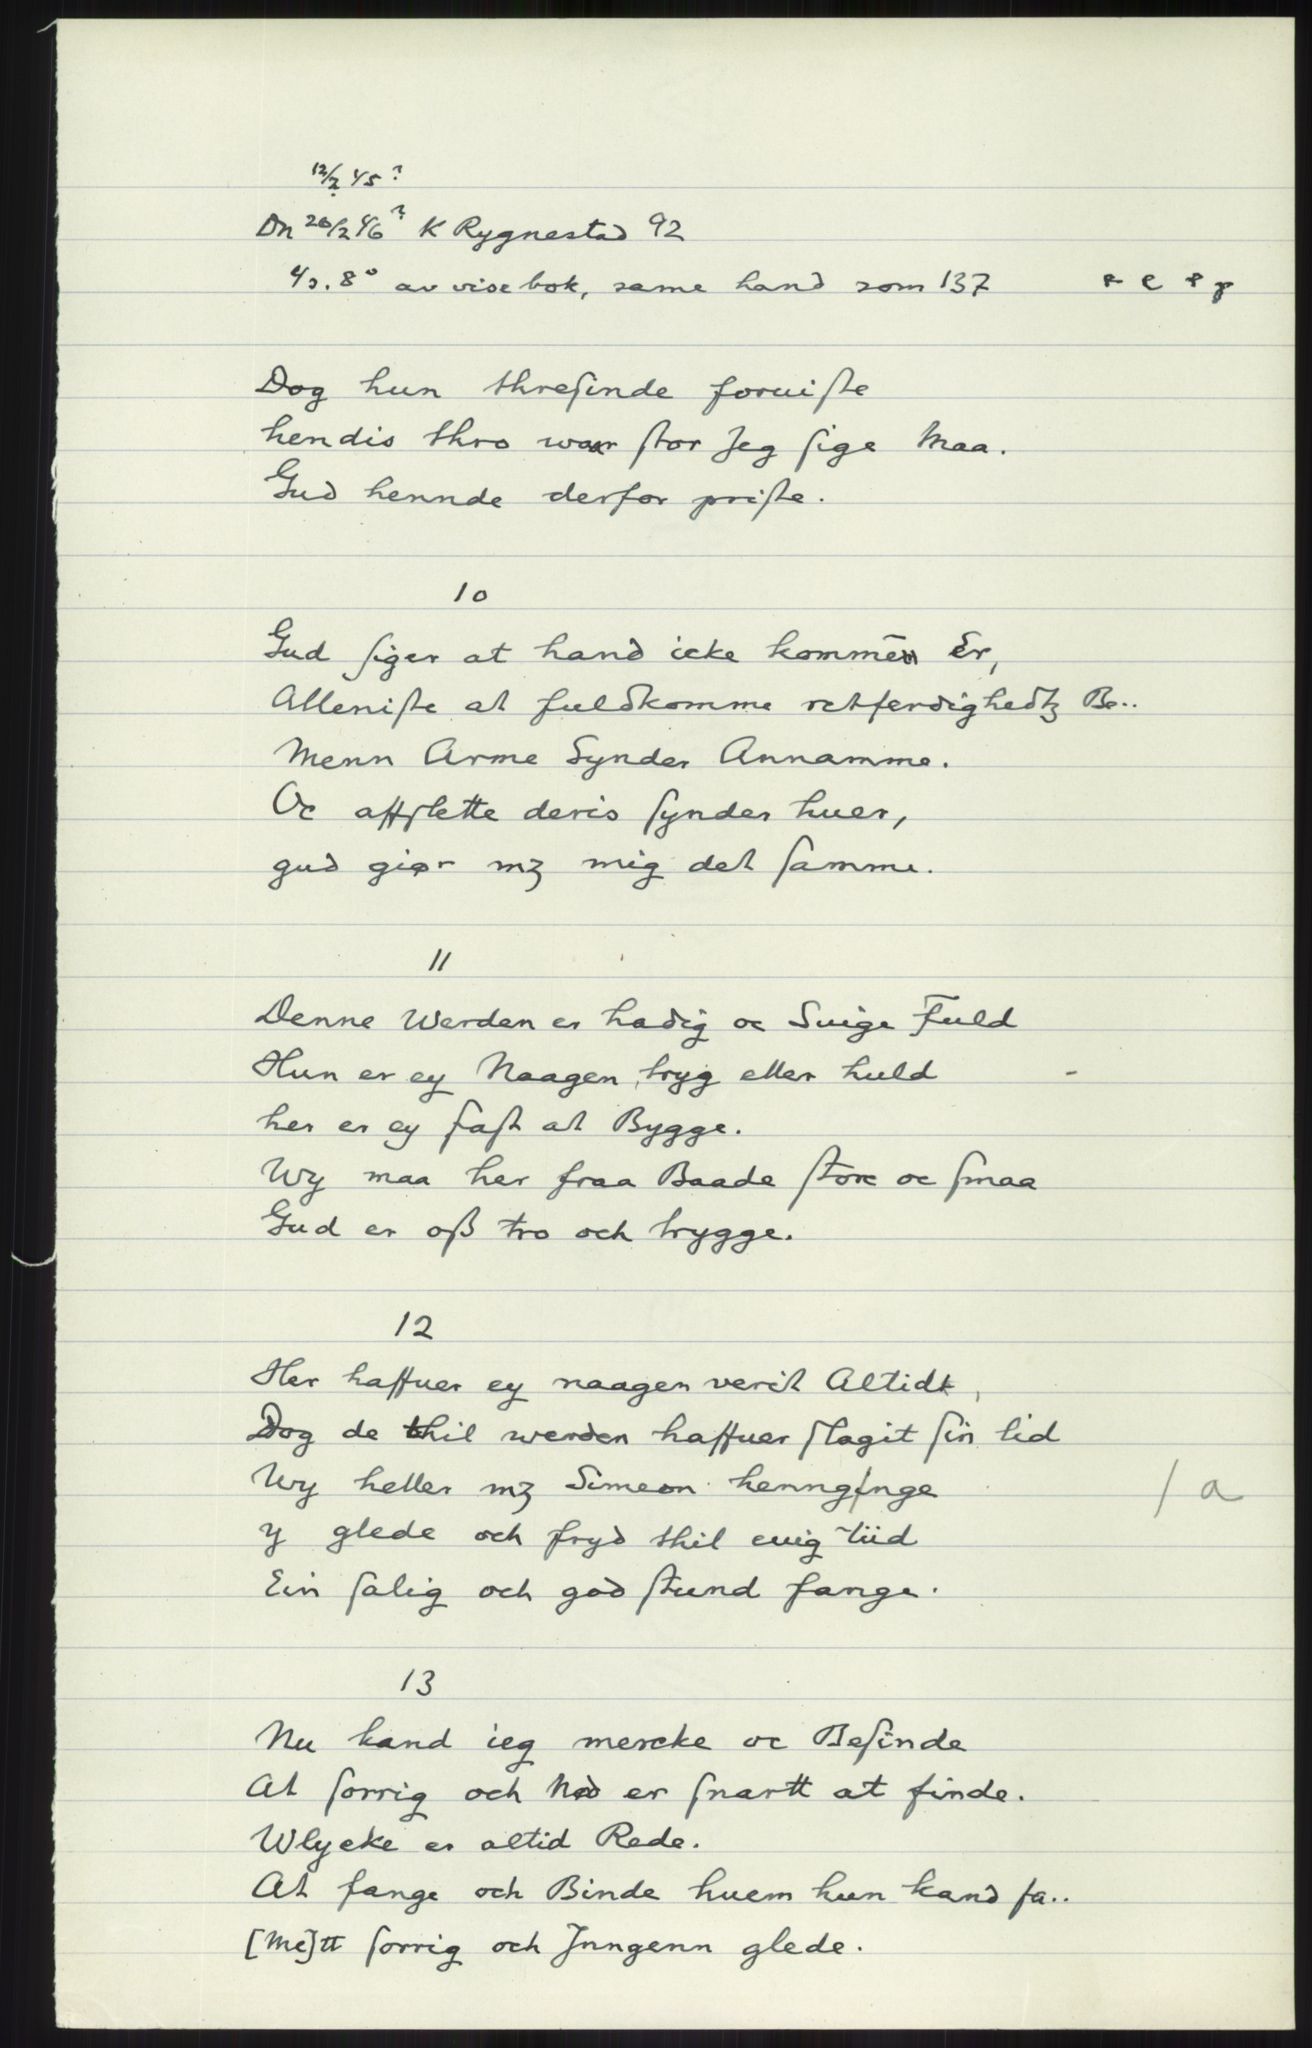 12/2 45?
Dn 26/2 46? K Rygnestad 92
4 s. 8° av visebok, same hand som 137
Dog hun threſinde foruiſte
hendis thro waar ſtor Jeg ſige Maa.
Gud hennde derfor priſte.
10
Gud ſiger at hand icke kommēn Er,
Alleniſte at fuldkomme retferdighedtz Be..
Menn Arme Synder Annamme.
Oc affſlette deris ſynder huer,
gud giør mz mig det ſamme.
11
Denne Werden er hadig oc Suige Fuld
Hun er ey Naagen tryg eller huld
her er ey faſt at Bygge.
Wy maa her fraa Baade ſtore oc ſmaa
Gud er oß tro och trygge.
12
Her haffuer ey naagen verit Altidt,
Dog de thil werden haffuer ſlagit ſin lid
Wy heller mz Simeon hennginge / a
y glede och fryd thil euig tiid
Ein ſalig och god ſtund fange.
13
Nu kand ieg mercke oc Befinde
At ſorrig och Nød er ſnartt at finde.
Wlycke er altid Rede.
At fange och Binde huem hun kand fa..
[Me]tt ſorrig och Jnngenn glede.